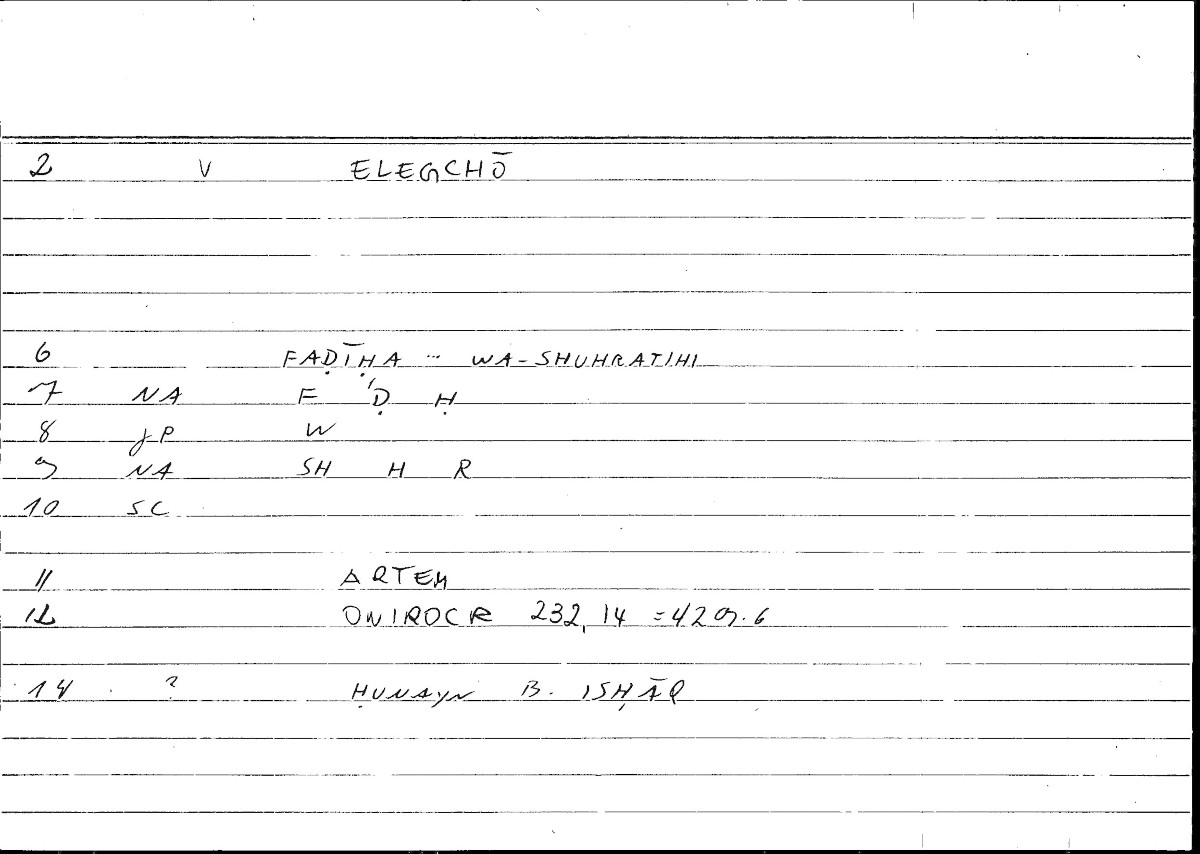 2 V ELEGCHŌ
6 FAḌĪḤA ... WA-SHUHRATIHI
7 NA F 'Ḍ Ḥ
8 JP W
9 NA SH H R
10 SC
11 ARTEM
12 ONIROCR 232,14 = 429.6
14 ? ḤUNAYN B. ISḤĀQ